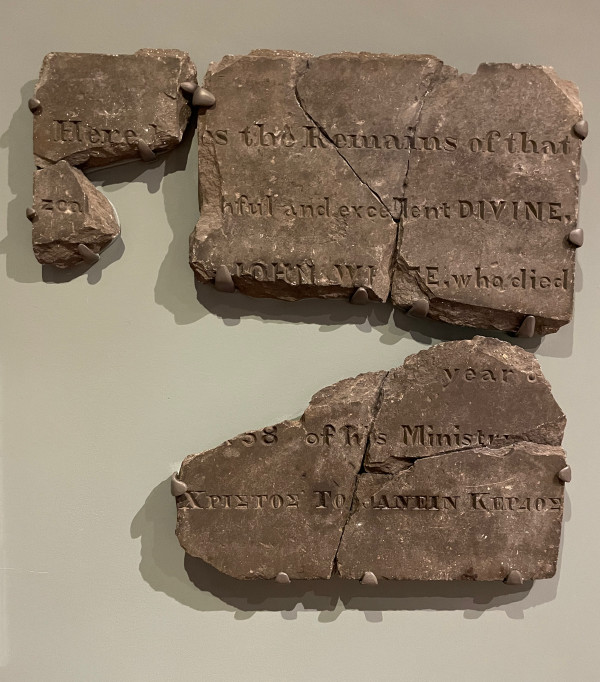 Here es the Remains of that
zeal hful and excellent DIVINE,
JOHN WI E, who died
year
58 of his Ministry
ΧΡΙΣΤΟΣ ΤΟ ΑΝΕΙΝ ΚΕΡΔΟΣ